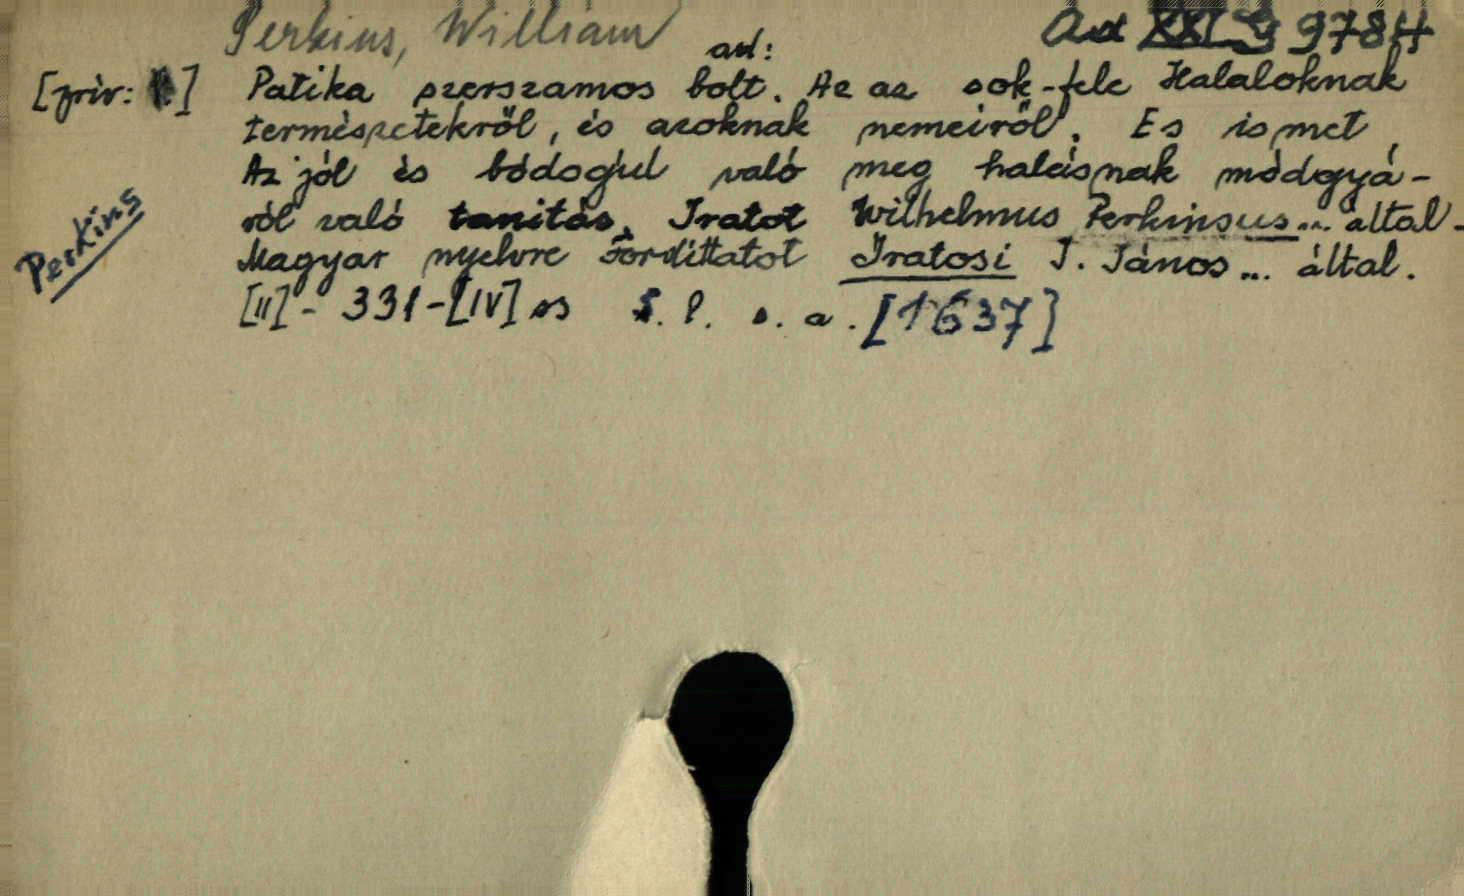 Perkins, William
Ad 9784
aut:
[priv: ] Patika szerszamos bolt. Az az sok-fele Halaloknak
természetekről, és azoknak nemeiről. Es ismet,
Az jól és bódogul való meg halásnak módgyá-
ról való tanitás. Iratot Wilhelmus Perkinsus... altal-
Perkins
Magyar nyelvre Fordittatot Iratosi T. János... által.
[II] - 331 - [IV] os S. l. s. a. [1637]